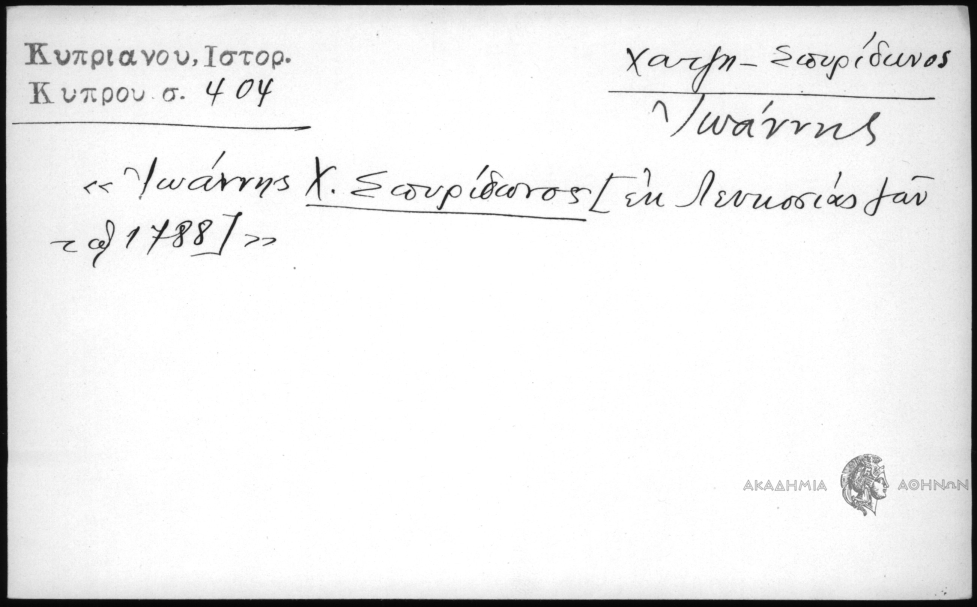 Κυπριανου, Ιστορ.
Κυπρου σ. 404
Χατζη - Σπυρίδωνος
Ἰωάννης
« Ἰωάννης Χ. Σπυρίδωνος [ἐκ Λευκοσίας
1788] »
ΑΚΑΔΗΜΙΑ ΑΘΗΝΩΝ